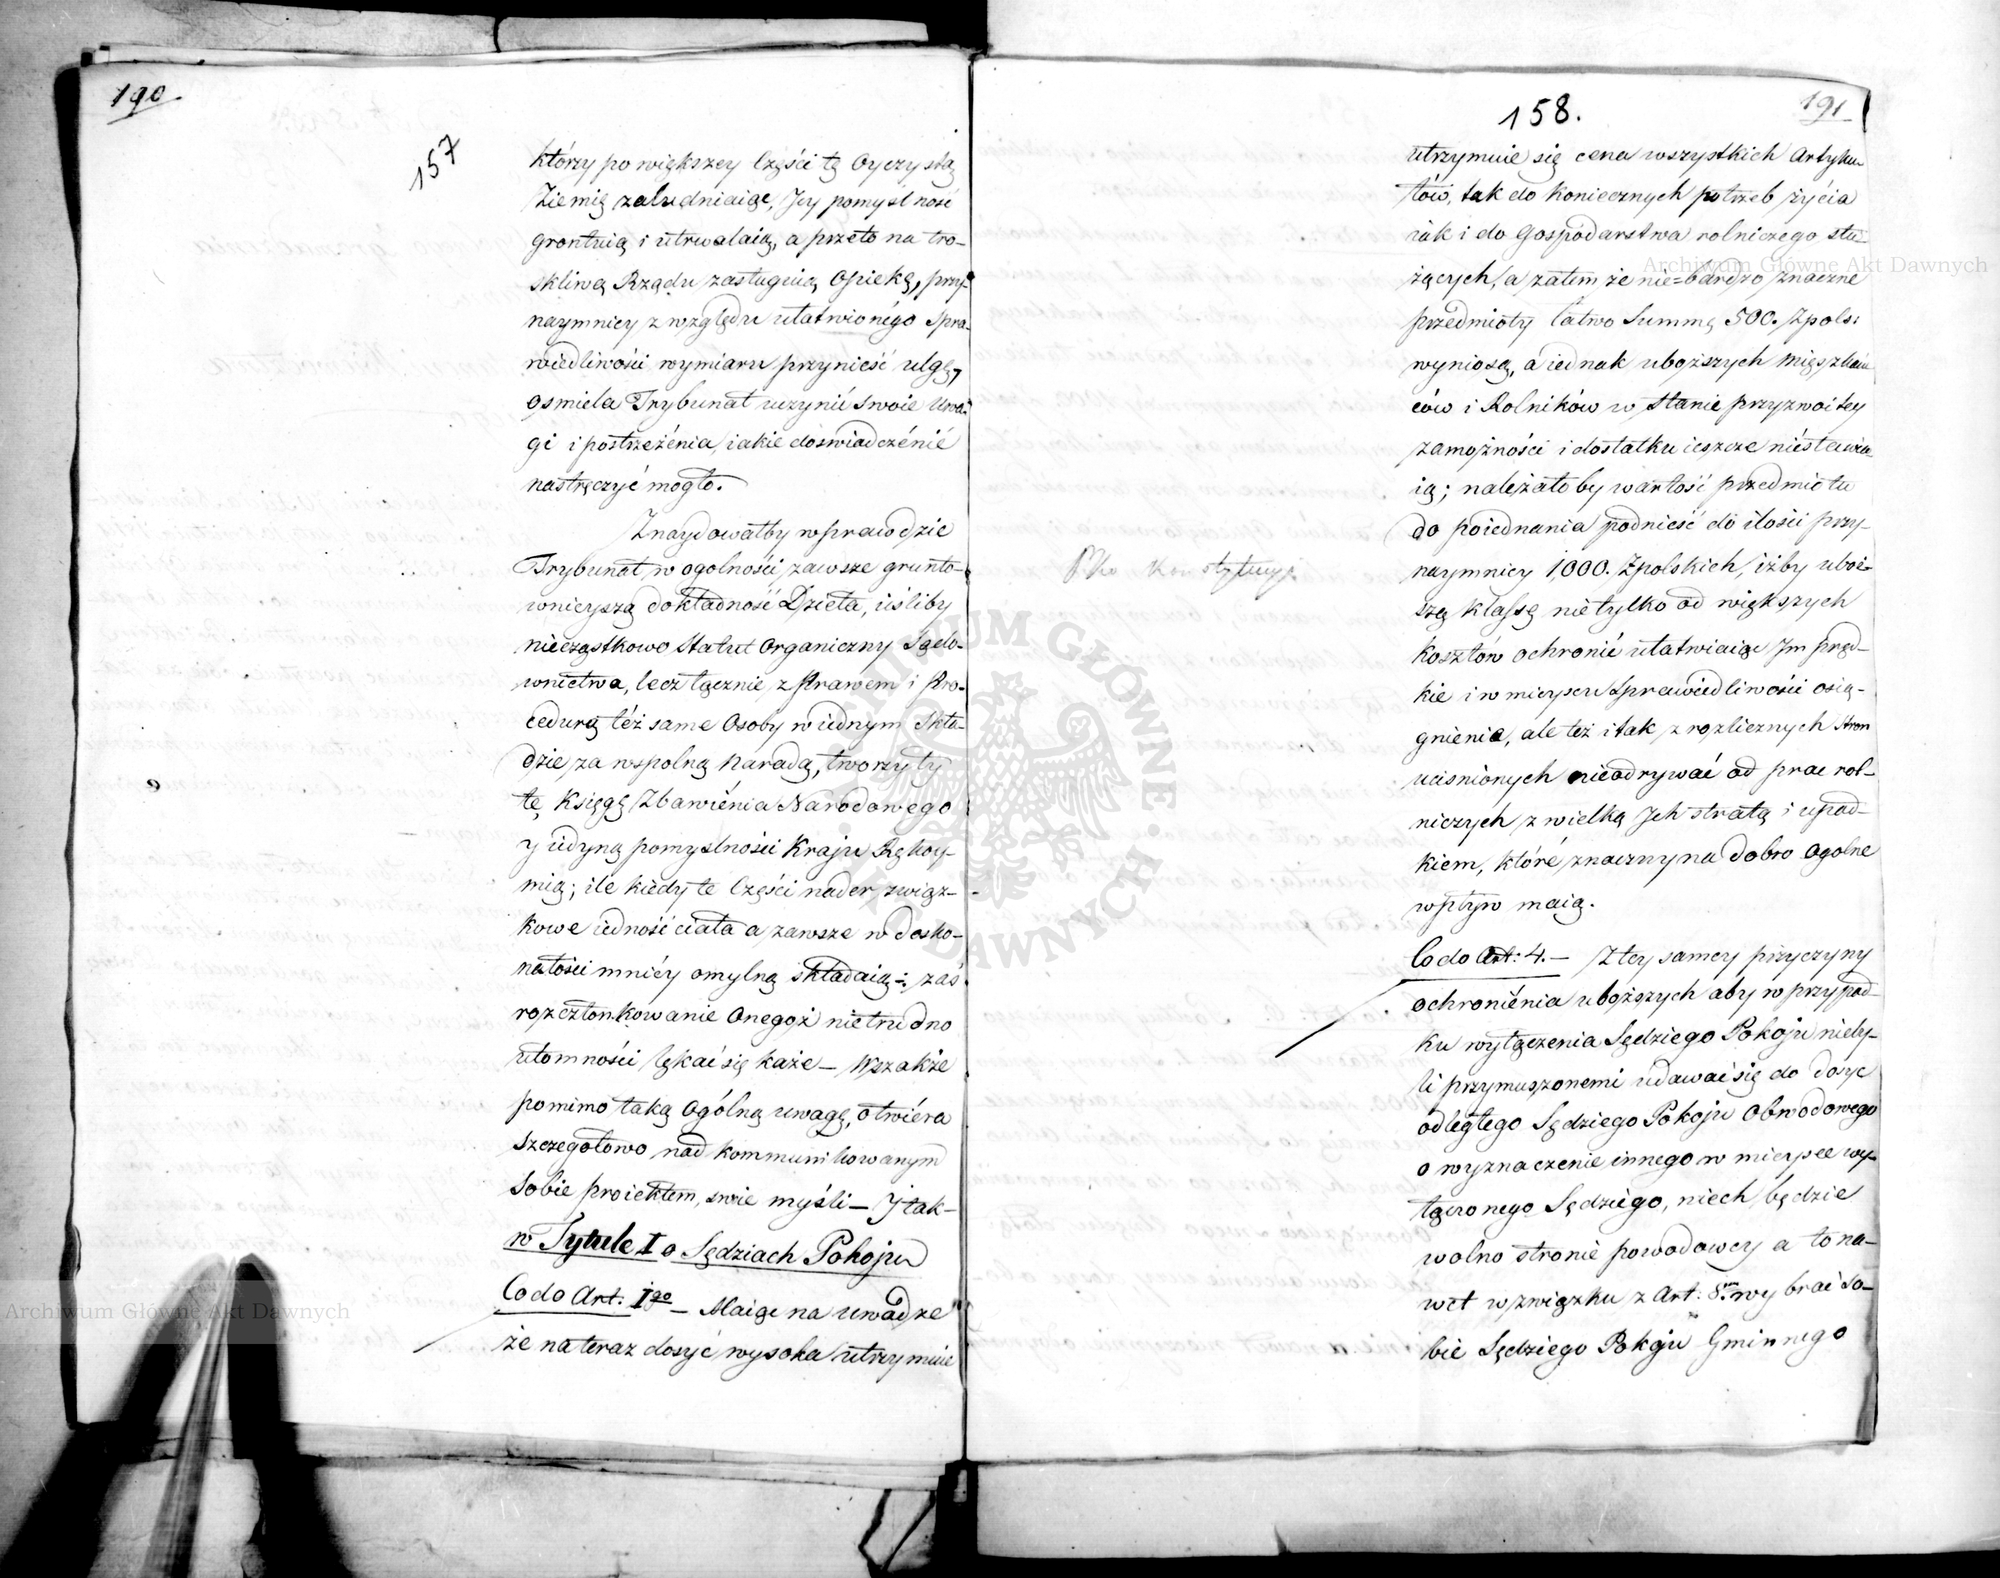 190
157
którzy po większey Części tę Oyczystą
Ziemię zaludniaiąc, Jey pomyślność
grontuią i utrwalaią, a przeto na tro-
skliwą Rządu zasługuią Opiekę, przy-
naymniey z względu ułatwionégo Spra-
wiedliwości wymiaru przynieść ulgę,
ośmiela Trybunał uczynić swoie Uwa-
gi i postrzeżénia, iakie doświadczénié
nastręczyć mogło.
Znaydowałby wprawdzie
Trybunał w ogolności zawsze grunto-
wnieyszą dokładność Dzieła, iésliby
nie cząstkowo Statut Organiczny Sądo-
wnictwa, lecz łącznie z Prawem i Pro-
cedurą też same Osoby w iednym Skła-
dzie za wspolną Naradą, tworzyły
tę Księgę Zbawiénia Narodowego
y iedyną pomyslności Kraju Rękoy-
mią; ile kiedy te Części nader związ-
kowe iedność ciała a zawsze w dosko-
nałości mniéy omylną składaią; zaś
rozczłonkowanie Onegoż nie trudno
ułomności lękać się każe — Wszakże
pomimo taką Ogólną uwagę, otwiéra
szczegołowo nad kommunikowanym
Sobie proiektem, swie myśli — J tak-
w Tytule I o Sędziach Pokoju
Co do Art: Igo — Maiąc na uwadze
że na teraz dosyć wysoka utrzymuie
158.
191
utrzymuie się cena wszystkich Artyku-
łów, tak do koniecznych potrzeb życia
iak i do Gospodarstwa rolniczego słu-
żących, a zatem że nie=bardzo znaczne
przedmioty łatwo Summę 500. Zpols:
wyniosą, a iednak uboższych Mieszkań-
ców i Rolników w stanie przyzwoitey
zamożności i dostatku ieszcze niestawia-
ią; należałoby wartość przedmiotu
do poiednania podnieść do ilości przy-
naymniey 1,000. Zpolskich, iżby uboż-
szą klassę nietylko od większych
kosztów ochronić ułatwiaiąc Im pręd-
kie i w mieyscu Sprawiedliwości osią-
gnienie, ale też i tak z rozlicznych stron
uciśnionych nieodrywać od prac rol-
niczych z wielką Jch stratą i upad-
kiem, któré znaczny na dobro Ogolne
wpływ maią.
Co do Art: 4. — Z tey samey przyczyny
ochroniénia uboższych aby w przypad-
ku wyłączenia Sędziego Pokoju nieby-
li przymuszonemi udawać się do dosyć
odległego Sędziego Pokoju Obwodowego
o wyznaczenie innego w mieysce wy-
łączonego Sędziégo, niech będzie
wolno stronie powodowey a to na-
wet w związku z Art: 8. wybrać so-
bie Sędziego Pokoju Gminnego